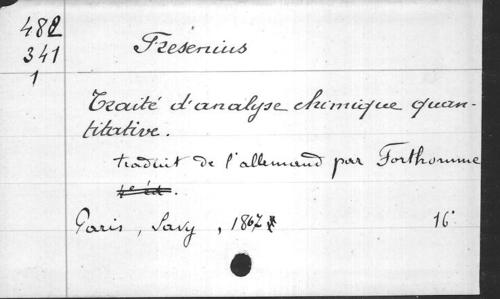 482
341
1
Frésenius
Traité d'analyse chimique quan-
titative.
traduit de l'allemand par Forthomme
Paris, Savy, 1867 16°